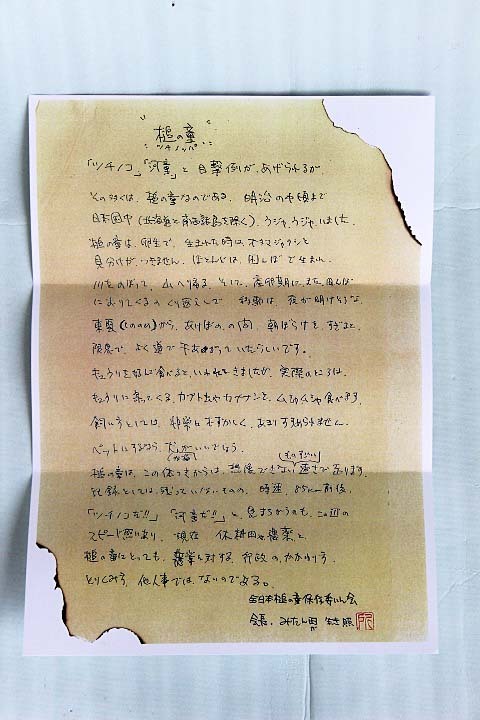 槌の童
ツチノッパ
「ツチノコ」「河童」と目撃例が、あげられるが
その多くは、槌の童なのである。明治の中頃まで
日本国中(北海道と南西諸島を除く)、ウジャ、ウジャ、いました。
槌の童は、卵生で、生まれた時は、オタマジャクシと
見分けが、つきません。ほとんどは、田んぼで生まれ
川をのぼって、山へ帰る。そして、産卵期に、また、田んぼ
におりてくるのくり返えしで 移動は、夜が明けそうな、
東雲(しののめ)から、あけぼの、の間、朝ぼらけを、すぎると
陽息で、よく道で干あがっていたらしいです。
きゅうりを好んで食べると、いわれてきましたが、実際のところは、
きゅうりに集ってくるカブト虫やカナブンを、ムシャムシャ食べます。
飼い方としては、非常にむずかしく、あまりすすめられません。
ペットにするなら、犬がいいでしょう。
槌の童は、この体つきからは、想像できない速さで走ります。
ものすごい
記録としては、残っていないものの、時速、85km前後、
「ツチノコだ!!」「河童だ!!」と、見まちがうのも、この辺の
スピード感にあり、現在 休耕田や農薬と
槌の童にとっても、農業に対する、行政の、かかわり方
とりくみ方、他人事では、ないのである。
全日本槌の童保存委いん会
会長、みたん